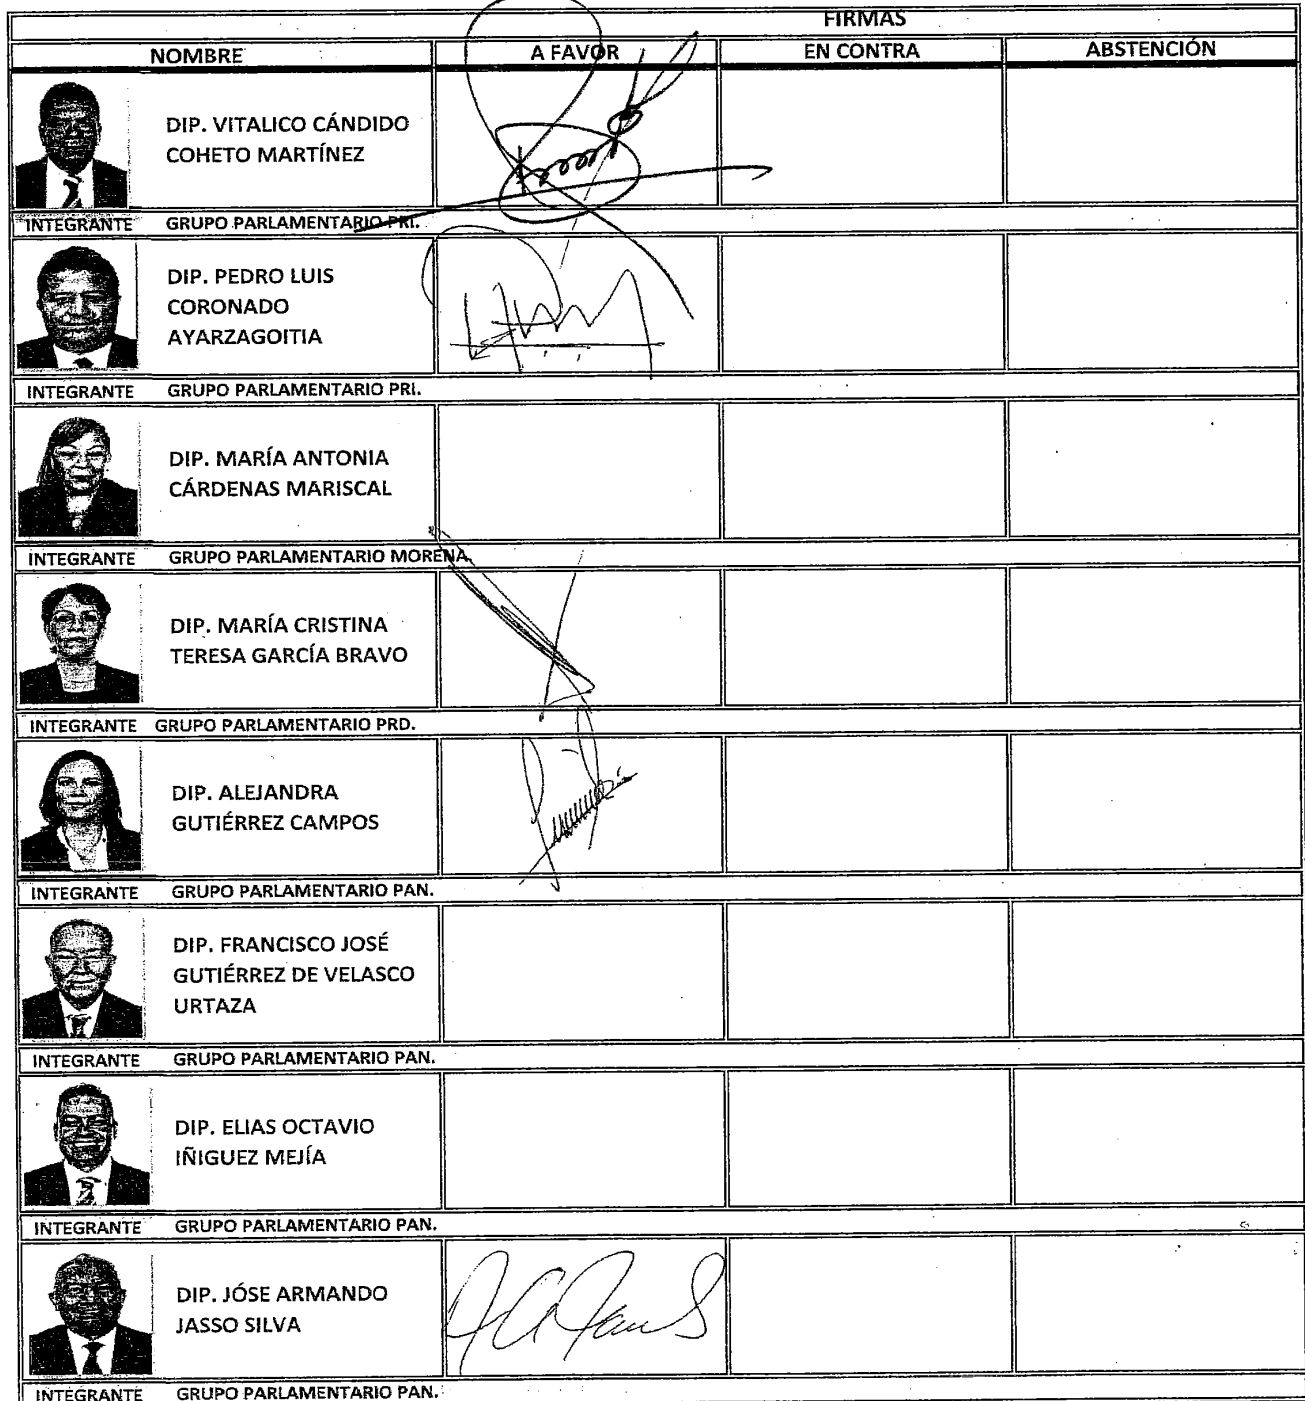 FIRMAS
NOMBRE A FAVOR EN CONTRA ABSTENCIÓN
DIP. VITALICO CÁNDIDO
COHETO MARTÍNEZ
INTEGRANTE GRUPO PARLAMENTARIO PRI.
DIP. PEDRO LUIS
CORONADO
AYARZAGOITIA
INTEGRANTE GRUPO PARLAMENTARIO PRI.
DIP. MARÍA ANTONIA
CÁRDENAS MARISCAL
INTEGRANTE GRUPO PARLAMENTARIO MORENA.
DIP. MARÍA CRISTINA
TERESA GARCÍA BRAVO
INTEGRANTE GRUPO PARLAMENTARIO PRD.
DIP. ALEJANDRA
GUTIÉRREZ CAMPOS
INTEGRANTE GRUPO PARLAMENTARIO PAN.
DIP. FRANCISCO JOSÉ
GUTIÉRREZ DE VELASCO
URTAZA
INTEGRANTE GRUPO PARLAMENTARIO PAN.
DIP. ELIAS OCTAVIO
IÑIGUEZ MEJÍA
INTEGRANTE GRUPO PARLAMENTARIO PAN.
DIP. JÓSE ARMANDO
JASSO SILVA
INTEGRANTE GRUPO PARLAMENTARIO PAN.